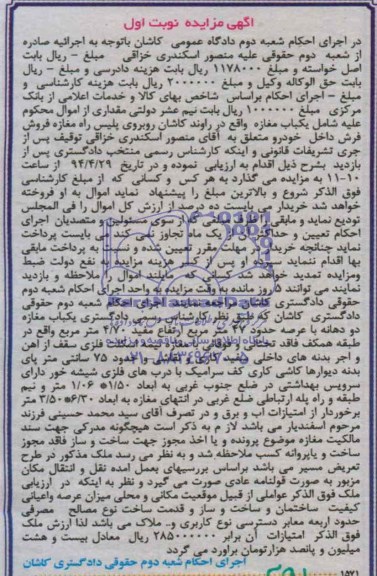 آگهی مزایده نوبت اول
در اجرای احکام شعبه دوم دادگاه عمومی کاشان باتوجه به اجرائیه صادره
از شعبه دوم حقوقی علیه منصور اسکندری خزاقی مبلغ - ریال بابت
اصل خواسته و مبلغ ۱۱۷۸۰۰۰ ریال بابت هزینه دادرسی و مبلغ - ریال
بابت حق الوکاله وکیل و مبلغ ۲۰۰۰۰۰۰ ریال بابت هزینه کارشناسی و
مبلغ - اجرای احکام براساس شاخص بهای کالا و خدمات اعلامی از بانک
مرکزی مبلغ ریال بابت نیم عشر دولتی مقداری از اموال محکوم
علیه شامل یکباب مغازه واقع در راوند کاشان روبروی پلیس راه مغازه فروش
فرش داخل خودرو متعلق به آقای منصور اسکندری خزاقی توقیف پس از
جری تشریفات قانونی و اینکه کارشناس رسمی منتخب دادگستری پس از
بازدید بشرح ذیل اقدام به ارزیابی نموده و در تاریخ ۹۴/۴/۲۹ از ساعت
۱۰-۱۱ به مزایده می گذارد به هر کس و کسانی که از مبلغ کارشناسی
فوق الذکر شروع و بالاترین مبلغ را پیشنهاد نماید اموال به او فروخته
خواهد شد خریدار می بایست ده درصد از ارزش کل اموال را فی المجلس
تودیع نماید و مابقی از سوی مسئولین و متصدیان اجرای
احکام تعیین و حداکثر از یک ماه تجاوز نمی کند می بایست پرداخت
نماید چنانچه خریدار در مهلت مقرر تعیین شده نسبت به پرداخت مابقی
بها اقدام ننماید سپرده او پس از کسر هزینه مزایده به نفع دولت ضبط
ومزایده تمدید خواهد شد کسانی که مایلند اموال را ملاحظه و بازدید
نمایند می توانند ۵ روز مانده به وقت مزایده به واحد اجرای احکام شعبه دوم
حقوقی دادگستری کاشان مراجعه نمایند اجرای احکام شعبه دوم حقوقی
دادگستری کاشان که طبق نظر کارشناس رسمی دادگستری یکباب مغازه
دو دهانه با عرصه حدود متر مربع ارتفاع مفید ۴/۷۰ متر مربع واقع در
طبقه همکف فاقد اسکلت فلزی سقف از آهن
و اجر بدنه های داخلی سفید کاری و نقاشی و حدود ۷۵ سانتی متر پای
بدنه دیوارها کاشی کاری کف سرامیک با درب های فلزی شیشه خور دارای
سرویس بهداشتی در ضلع جنوب غربی به ابعاد ۱/۵۰* ۱/۰۶ متر و نیم
طبقه و راه پله ارتباطی ضلع غربی در انتهای مغازه به ابعاد ۶/۳۰*۳/۵۰ متر
برخوردار از امتیازات آب و برق و در تصرف آقای سید محمد حسینی فرزند
مرحوم اسفندیار می باشد لازم به ذکر است هیچگونه مدرکی جهت سند
مالکیت مغازه موضوع پرونده و یا اخذ مجوز جهت ساخت و ساز فاقد مجوز
ساخت و یاپروانه کسب ملاحظه شد و به نظر می رسد ملک مذکور در طرح
تعریض مسیر می باشد براساس بررسیهای بعمل آمده نقل و انتقال مکان
مزبور به صورت قولنامه عادی صورت می گیرد و نظر به اینکه در ارزیابی
ملک فوق الذکر عواملی از قبیل موقعیت مکانی و محلی میزان عرصه واعیانی
کیفیت ساختمان و ساخت و ساز و قدمت ساخت نوع مصالح مصرفی
حدود اربعه معابر دسترسی نوع کاربری و.. ملاک می باشد لذا ارزش ملک
فوق الذکر امتیازات آن برابر ۲۸۵۰۰۰۰۰۰ ریال معادل بیست و هشت
میلیون و پانصد هزارتومان برآورد می گردد
اجرای احکام شعبه دوم حقوقی دادگستری کاشان
۱۵۷۱